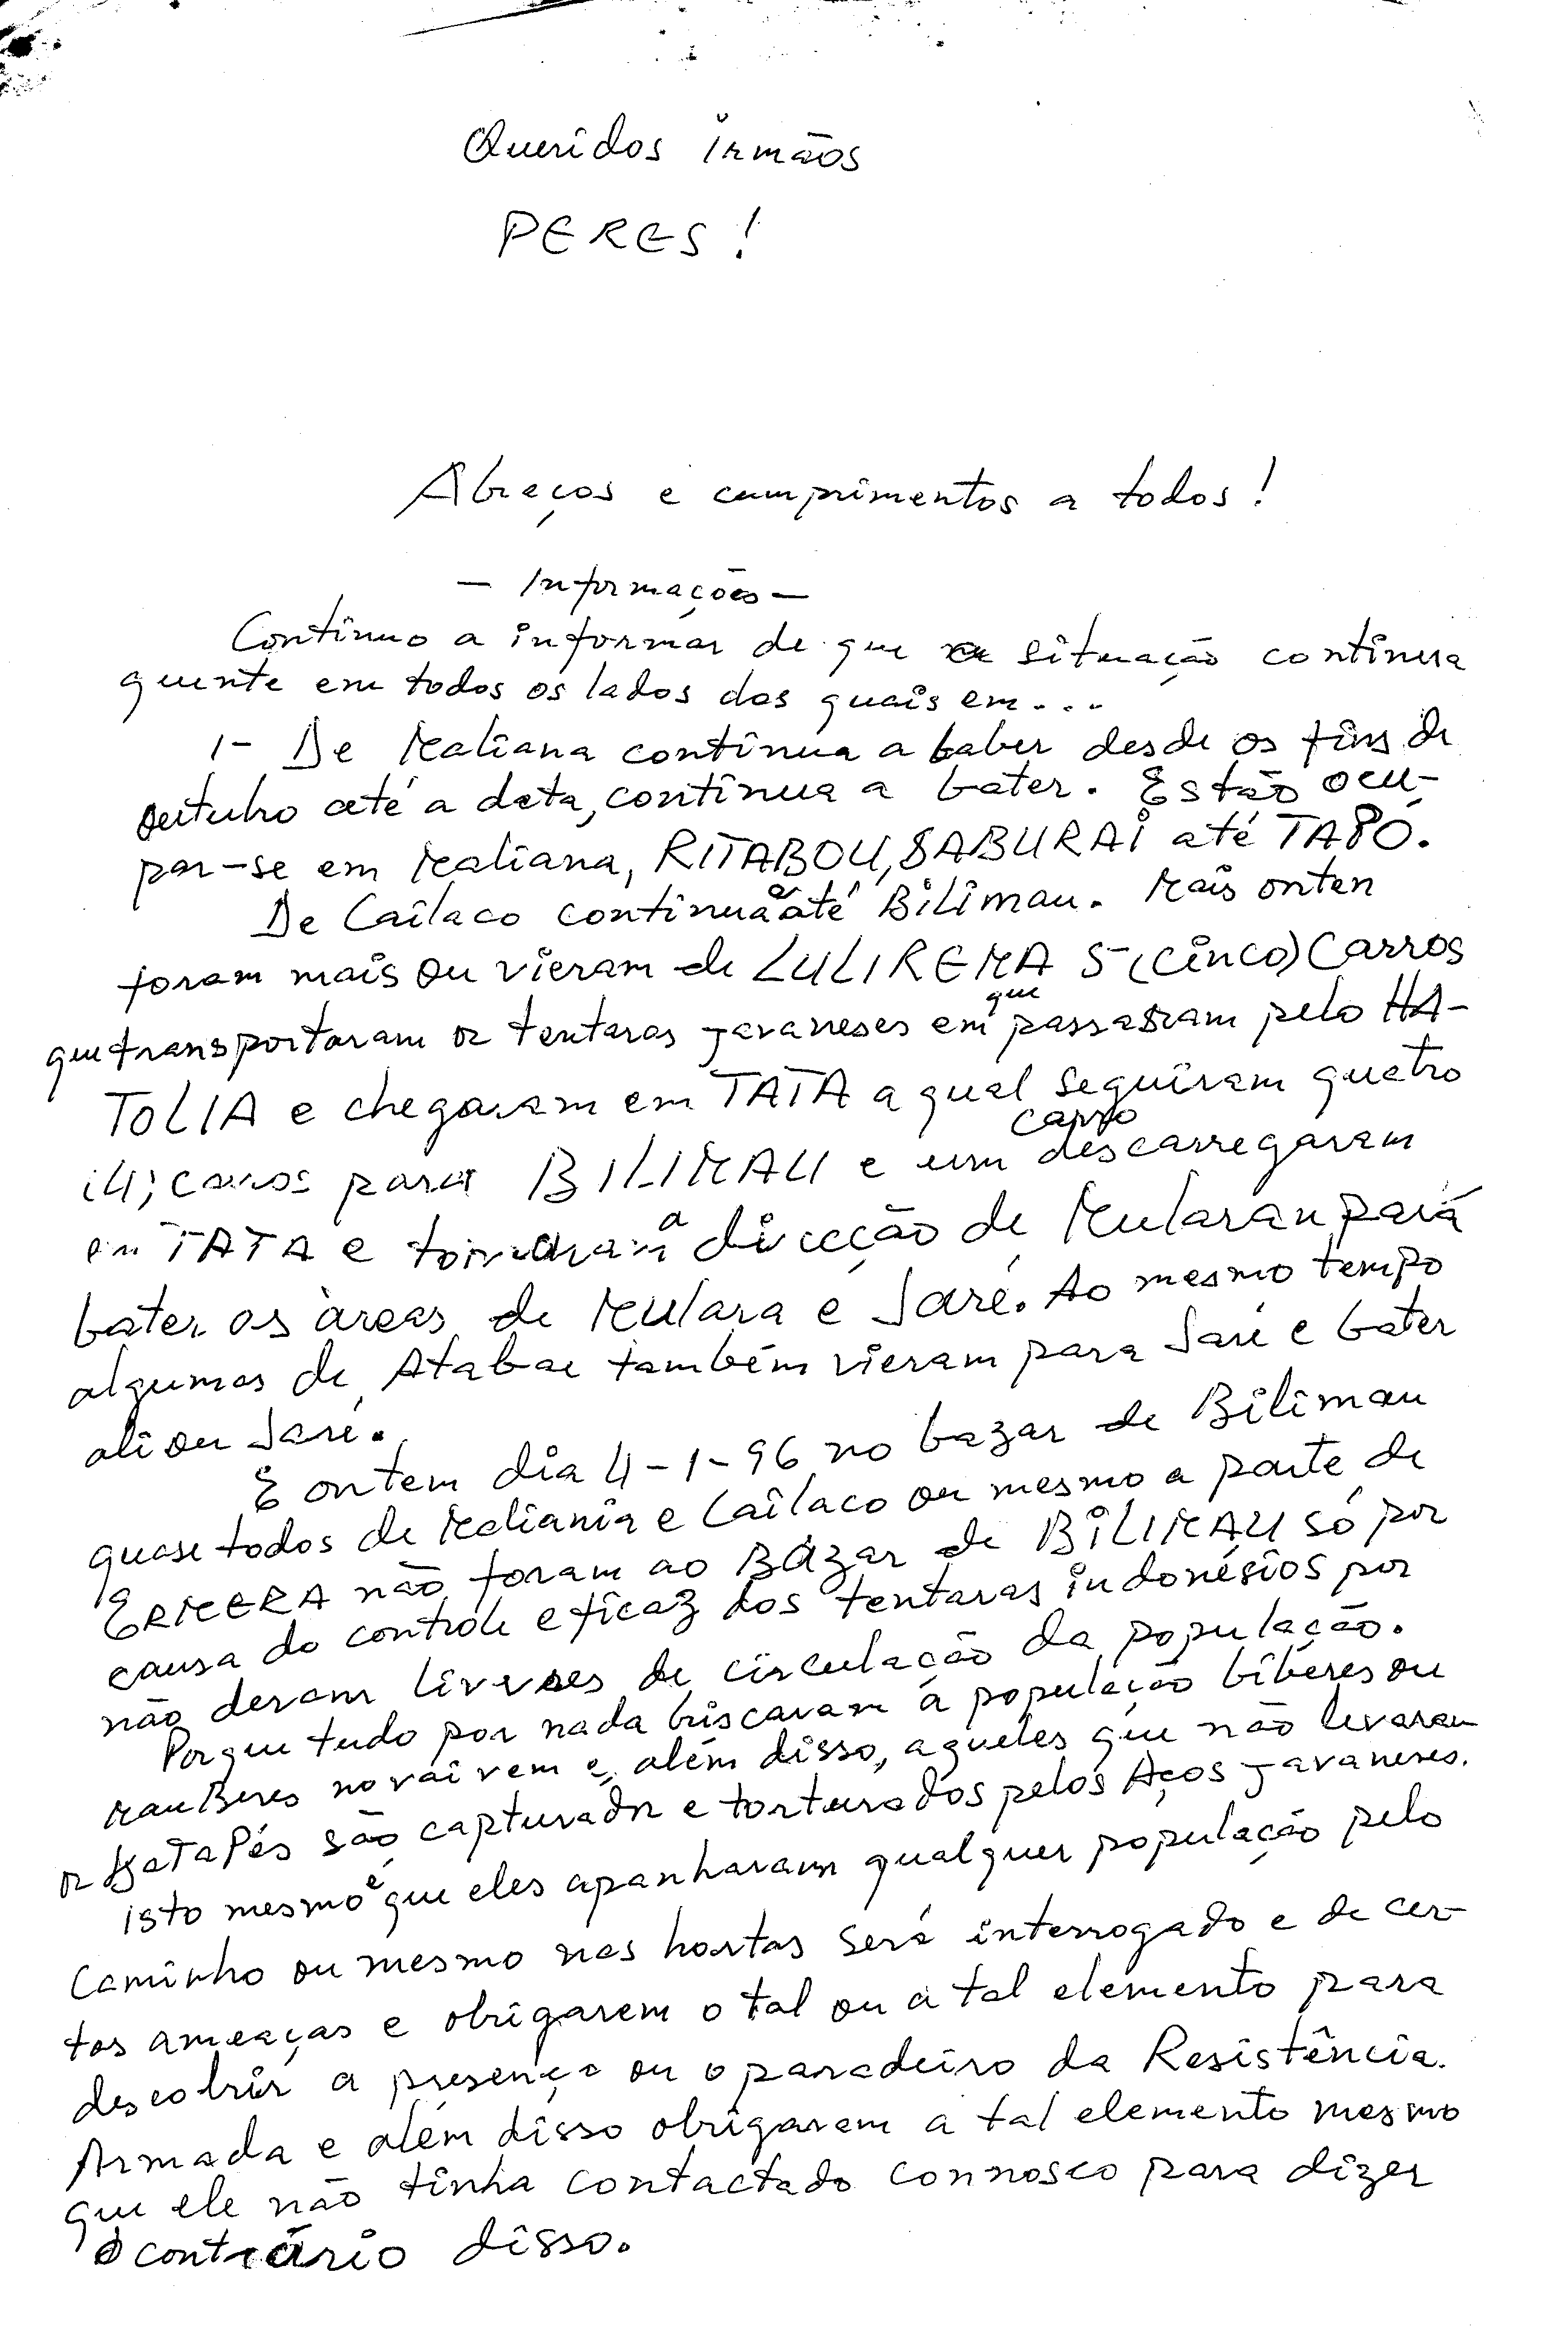 Queridos irmãos
PERES!
Abraços e cumprimentos a todos!
— Informações —
Continuo a informar de que a situação continua
quente em todos os lados dos quais em...
1- De Maliana continua a haber desde os fins de
outubro até a data, continua a bater. Estão ocu-
par-se em Maliana, RITABOU, SABURAI até TAPÓ.
De Cailaco continua e até Bilimau. Mais onten
foram mais ou vieram de LULIREMA 5 (cinco) Carros
que transportaram os tentaras javaneses em que passaram pelo HA-
TOLIA e chegaram em TATA a qual seguiram quatro
(4) carros para BILIMAU e um carro descarregaram
em TATA e tomaram a direcção de Mularau pará
bater os àreas de Mulara e Jaré. Ao mesmo tempo
algumas de Atabae também vieram para Jaré e bater
ali ou Jaré.
E ontem dia 4-1-96 no bazar de Bilimau
quase todos de Maliania e Cailaco ou mesmo a parte de
ERMERA não foram ao Bazar de BILIMAU só por
causa do controle eficaz dos tentaras indonésios por
não deram livres de circulação da população.
Porque tudo por nada buscavam á população bibéres ou
MauBeres no vai vem e, além disso, aqueles que não levaram
os BataPés são capturados e torturados pelos Aços javaneses.
isto mesmo é que eles apanharam qualquer população pelo
Caminho ou mesmo nas hortas será interrogado e de cer-
tas ameaças e obrigarem o tal ou a tal elemento para
descobrir a presença ou o paradeiro da Resistência.
Armada e além disso obrigaram a tal elemento mesmo
que ele não tinha contactado connosco para dizer
o contrário disso.